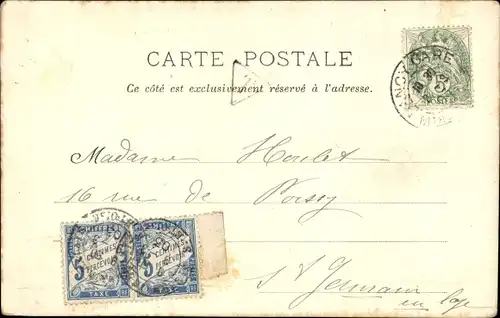 CARTE POSTALE
Ce côté est exclusivement réservé à l'adresse.
GARE
5
Madame Houlet
16 rue de Poissy
5 CENTIMES A PERCEVOIR TAXE
5 CENTIMES A PERCEVOIR TAXE
St Germain
en Laye